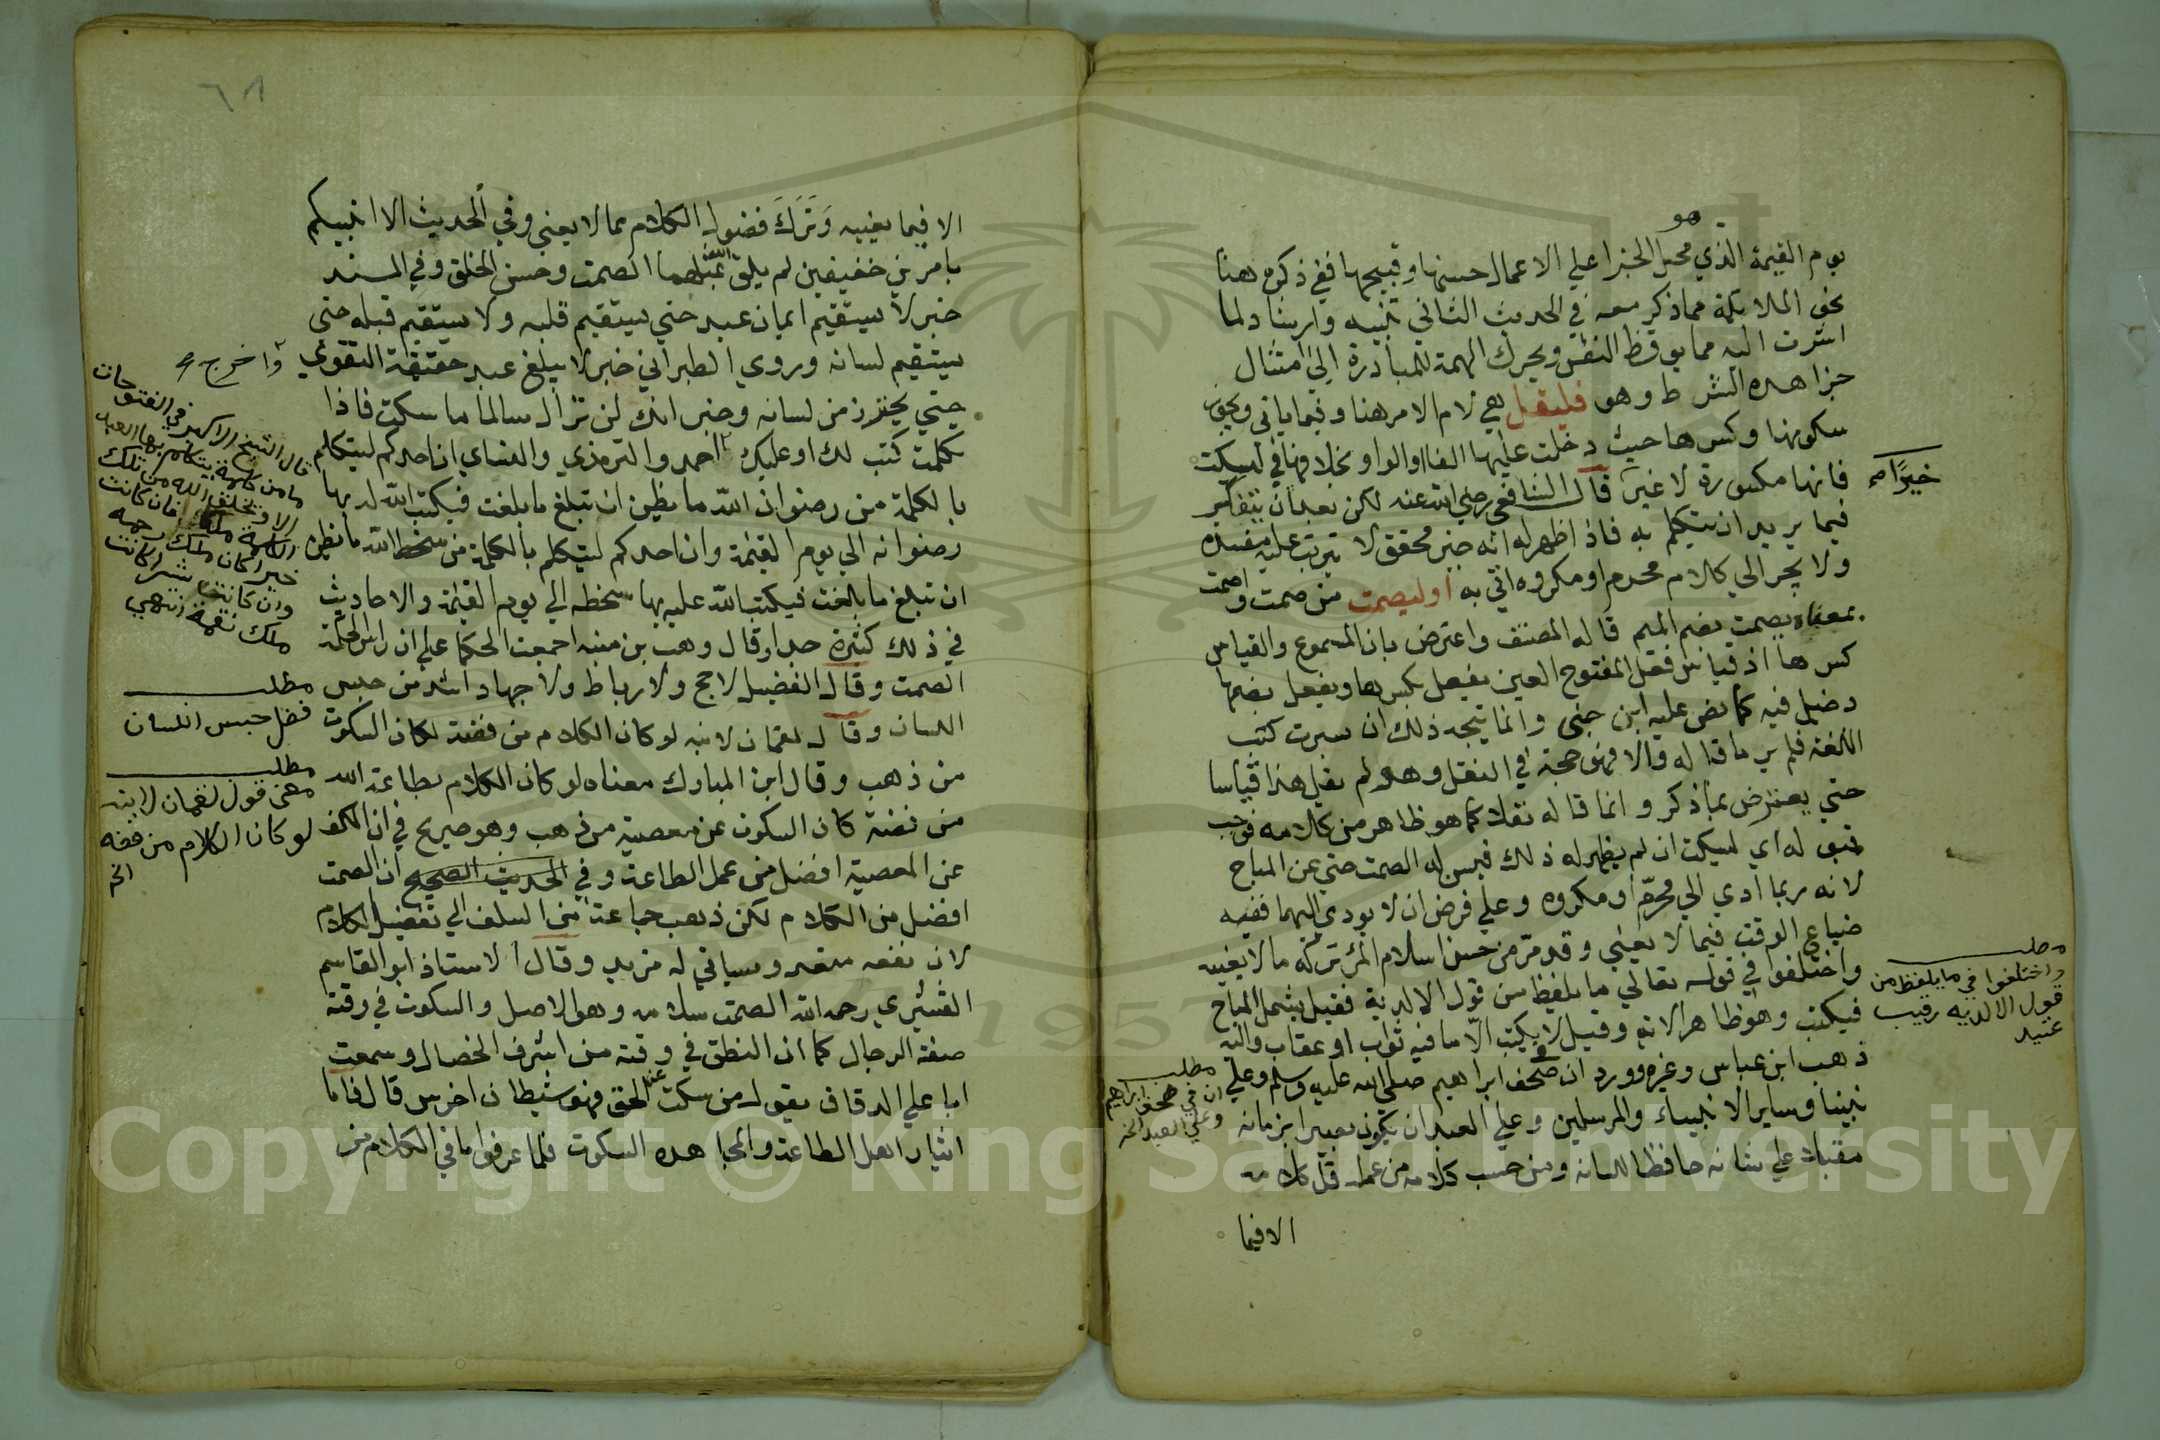 هو
يوم القيمة الذي محل الجزا علي الاعمال حسنها وقبيحها ففي ذكره هنا
نحو الملايكة مما ذكر معه في الحديث الثاني تنبيه وارشاد لما
اشرت اليه مما يوقظ النفس ويحرك الهمة للمبادرة الي امتثال
جزا هذه الشرط وهو فليقل هي لام الامر هنا وفيما ياتي ويجوز
سكونها وكسرها حيث دخلت عليها الفا او الواو بخلافها في ليسكت
فانها مكسورة لا غير قال الشافعي رضي الله عنه لكن بعد ان يتفكر
خيرًا صح
فيما يريد ان يتكلم به فاذا ظهر له انه خير محقق لا يترتب عليه مفسدة
ولا يجر الي كلام محرم او مكروه اتي به او ليصمت من صمت واصمت
بمعناه يصمت بضم الميم قاله المصنف واعترض بان المسموع والقياس
كسرها اذ قياس فعل المفتوح العين يفعل بكسرها ويفعل بضمها
دخيل فيه كما نص عليه ابن جني وانما يتجه ذلك ان سبرت كتب
اللغة فلم ير ما قاله والا فهو حجة في النقل وهو لم يقل هذا قياسا
حتي يعترض بما ذكر وانما قاله نقلا كما هو ظاهر من كلامه فوجب
قبوله اي ليسكت ان لم يظهر له ذلك فيسن له الصمت حتي عن المباح
لانه ربما ادي الي محرّم او مكروه وعلي فرض ان لا يودي اليهما ففيه
ضياع الوقت فيما لا يعني وقد مرّ من حسن اسلام المرء تركه ما لا يعنيه
واختلفوا في قوله تعالي ما يلفظ من قول الا لديه فقيل يشمل المباح
فيكتب وهو ظاهر الاية وقيل لا يكتب الا ما فيه ثواب او عقاب واليه
ذهب ابن عباس وغيره وورد ان في صحف ابراهيم صلي الله عليه وسلم وعلي
نبينا وساير الانبياء والمرسلين وعلي العبد ان يكون بصيرا بزمانه
مقبلا علي شانه حافظا للسانه ومن حسب كلامه من عمله قل كلامه
الا فيما
مطلب
واختلفوا في ما يلفظ من
قول الا لديه رقيب
عتيد
مطلب
ان في صحف ابراهيم
وعلي العبد الخ
٦٨
الا فيما يعنيه وَتَرَكَ فضول الكلام مما لا يعني وفي الحديث الا انبيكم
بامرين خفيفين لم يلق الله بمثلهما الصمت وحسن الخلق وفي المسند
خبر لا يستقيم ايمان عبد حتي يستقيم قلبه ولا يستقيم قبله حتي
يستقيم لسانه وروي الطبراني خبر لا يبلغ عبد حقيقة التقوي
حتي يحترز من لسانه وخبر انك لن تزال سالما ما سكت فاذا
تكلمت كتب لك او عليك احمد والترمذي والنساي ان احدكم ليتكلم
بالكلمة من رضوان الله ما يظن ان تبلغ ما بلغت فيكتب الله له بها
رضوانه الي يوم القيمة وان احدكم ليتكلم بالكلمة من سخط الله ما يظن
ان تبلغ ما بلغت فيكتب الله عليه بها سخطه الي يوم القيمة والاحاديث
في ذلك كثيرة جدا وقال وهب بن منبه اجمعت الحكما علي ان راس الحكمة
الصمت وقال الفضيل لا حج ولا رباط ولا جهاد اشد من حبس
اللسان وقال لقمان لابنه لو كان الكلام من فضة لكان السكوت
من ذهب وقال ابن المبارك معناه لو كان الكلام بطاعة الله
من فضة كان السكوت عن معصية من ذهب وهو صريح في ان الكف
عن المعصية افضل من عمل الطاعة وفي الحديث الصحيح ان الصمت
افضل من الكلام لكن ذهب جماعة من السلف الي تفضيل الكلام
لان نفعه متعد وسياتي له مزيد وقال الاستاذ ابو القاسم
القشيري رحمه الله الصمت سلامه وهو الاصل والسكوت في وقته
صفة الرجال كما ان النطق في وقته من اشرف الخصال وسمعت
ابا علي الدقاق يقول من سكت عن الحق فهو شيطان اخرس قال فاما
ايثار اهل الطاعة والمجاهده السكوت فلما عرفوا ما في الكلام من
واخرج
قال الشيخ الاكبر في الفتوحات
ما من كلمة يتكلم بها العبد
الا ويخلق الله من تلك
الكلمة ملكا فان كانت
خيرا كان ملك رحمة
وان كانت شرا كانت
ملك نقمة انتهي
مطلب
فضل حبس اللسان
مطلب
معني قول لقمان لابنه
لو كان الكلام من فضه
الخ
1957
Copyright © King Saud University